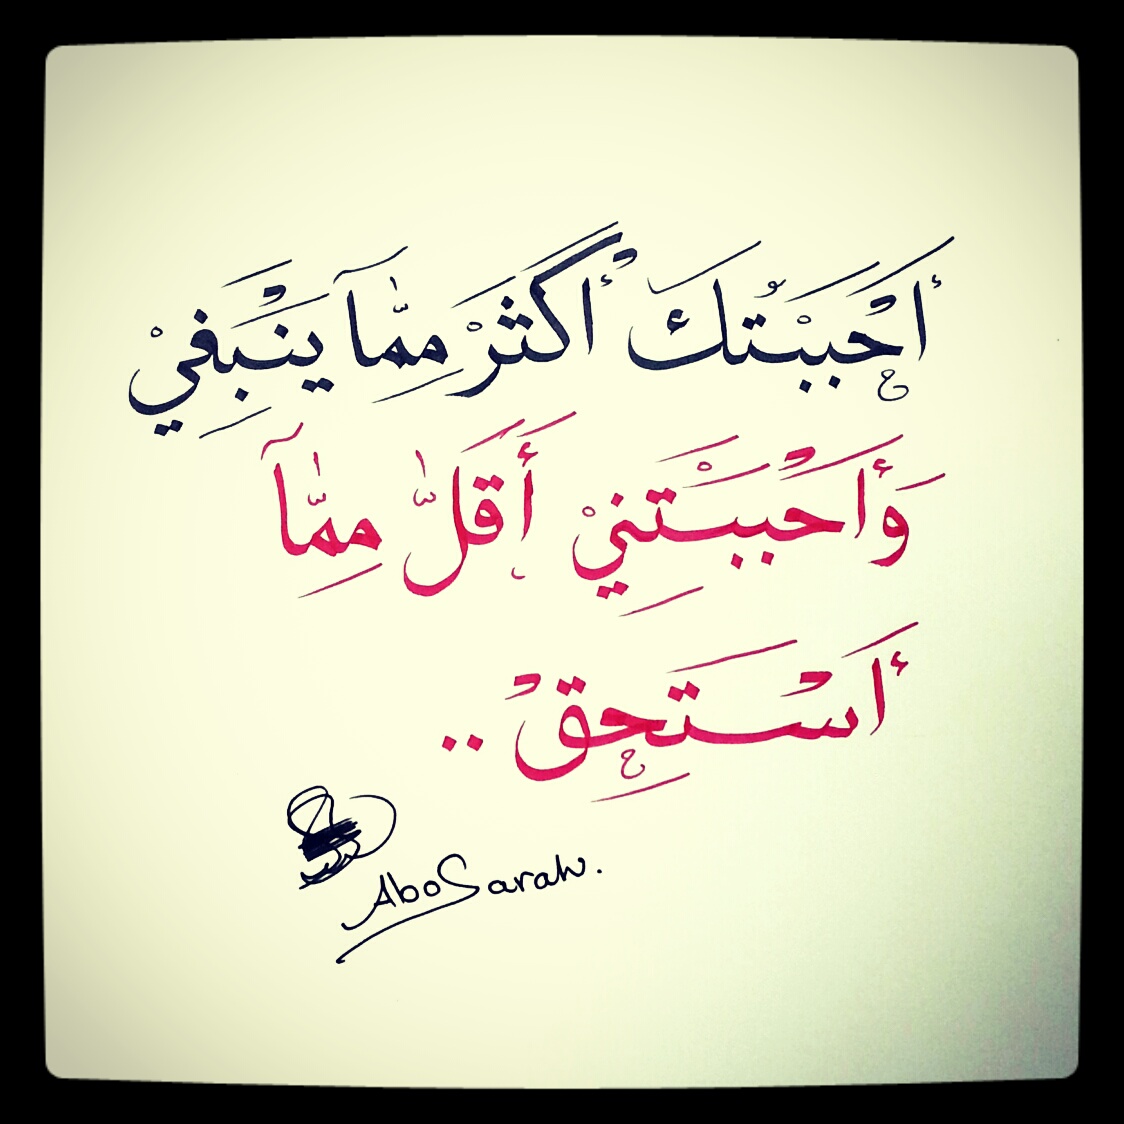 أَحْبَبْتُكَ أَكْثَرْ مِمَّا يَنْبَغِيْ
وَأَحْبَبْتِنِيْ أَقَلَّ مِمَّا
أَسْتَحِقْ ..
AboSarah.